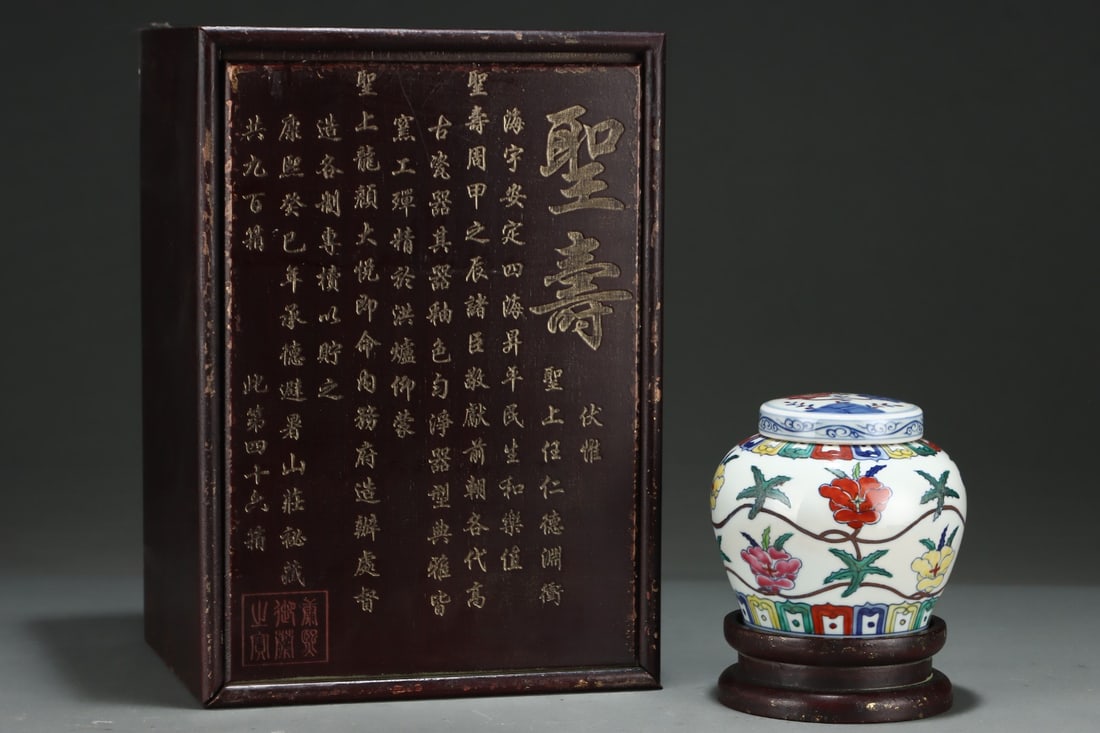 聖壽
伏惟
聖上任仁德淵衝
海宇安定四海昇年民生和樂值
聖壽周甲之辰諸臣敬獻前朝各代高
古瓷器其器釉色勻淨器型典雅皆
窯工殫精於洪爐仰蒙
聖上龍顏大悅即命內務府造辦處督
造各制專櫝以貯之
康熙癸巳年承德避暑山莊秘藏
共九百箱
此第四十六箱
康熙御覽之寶